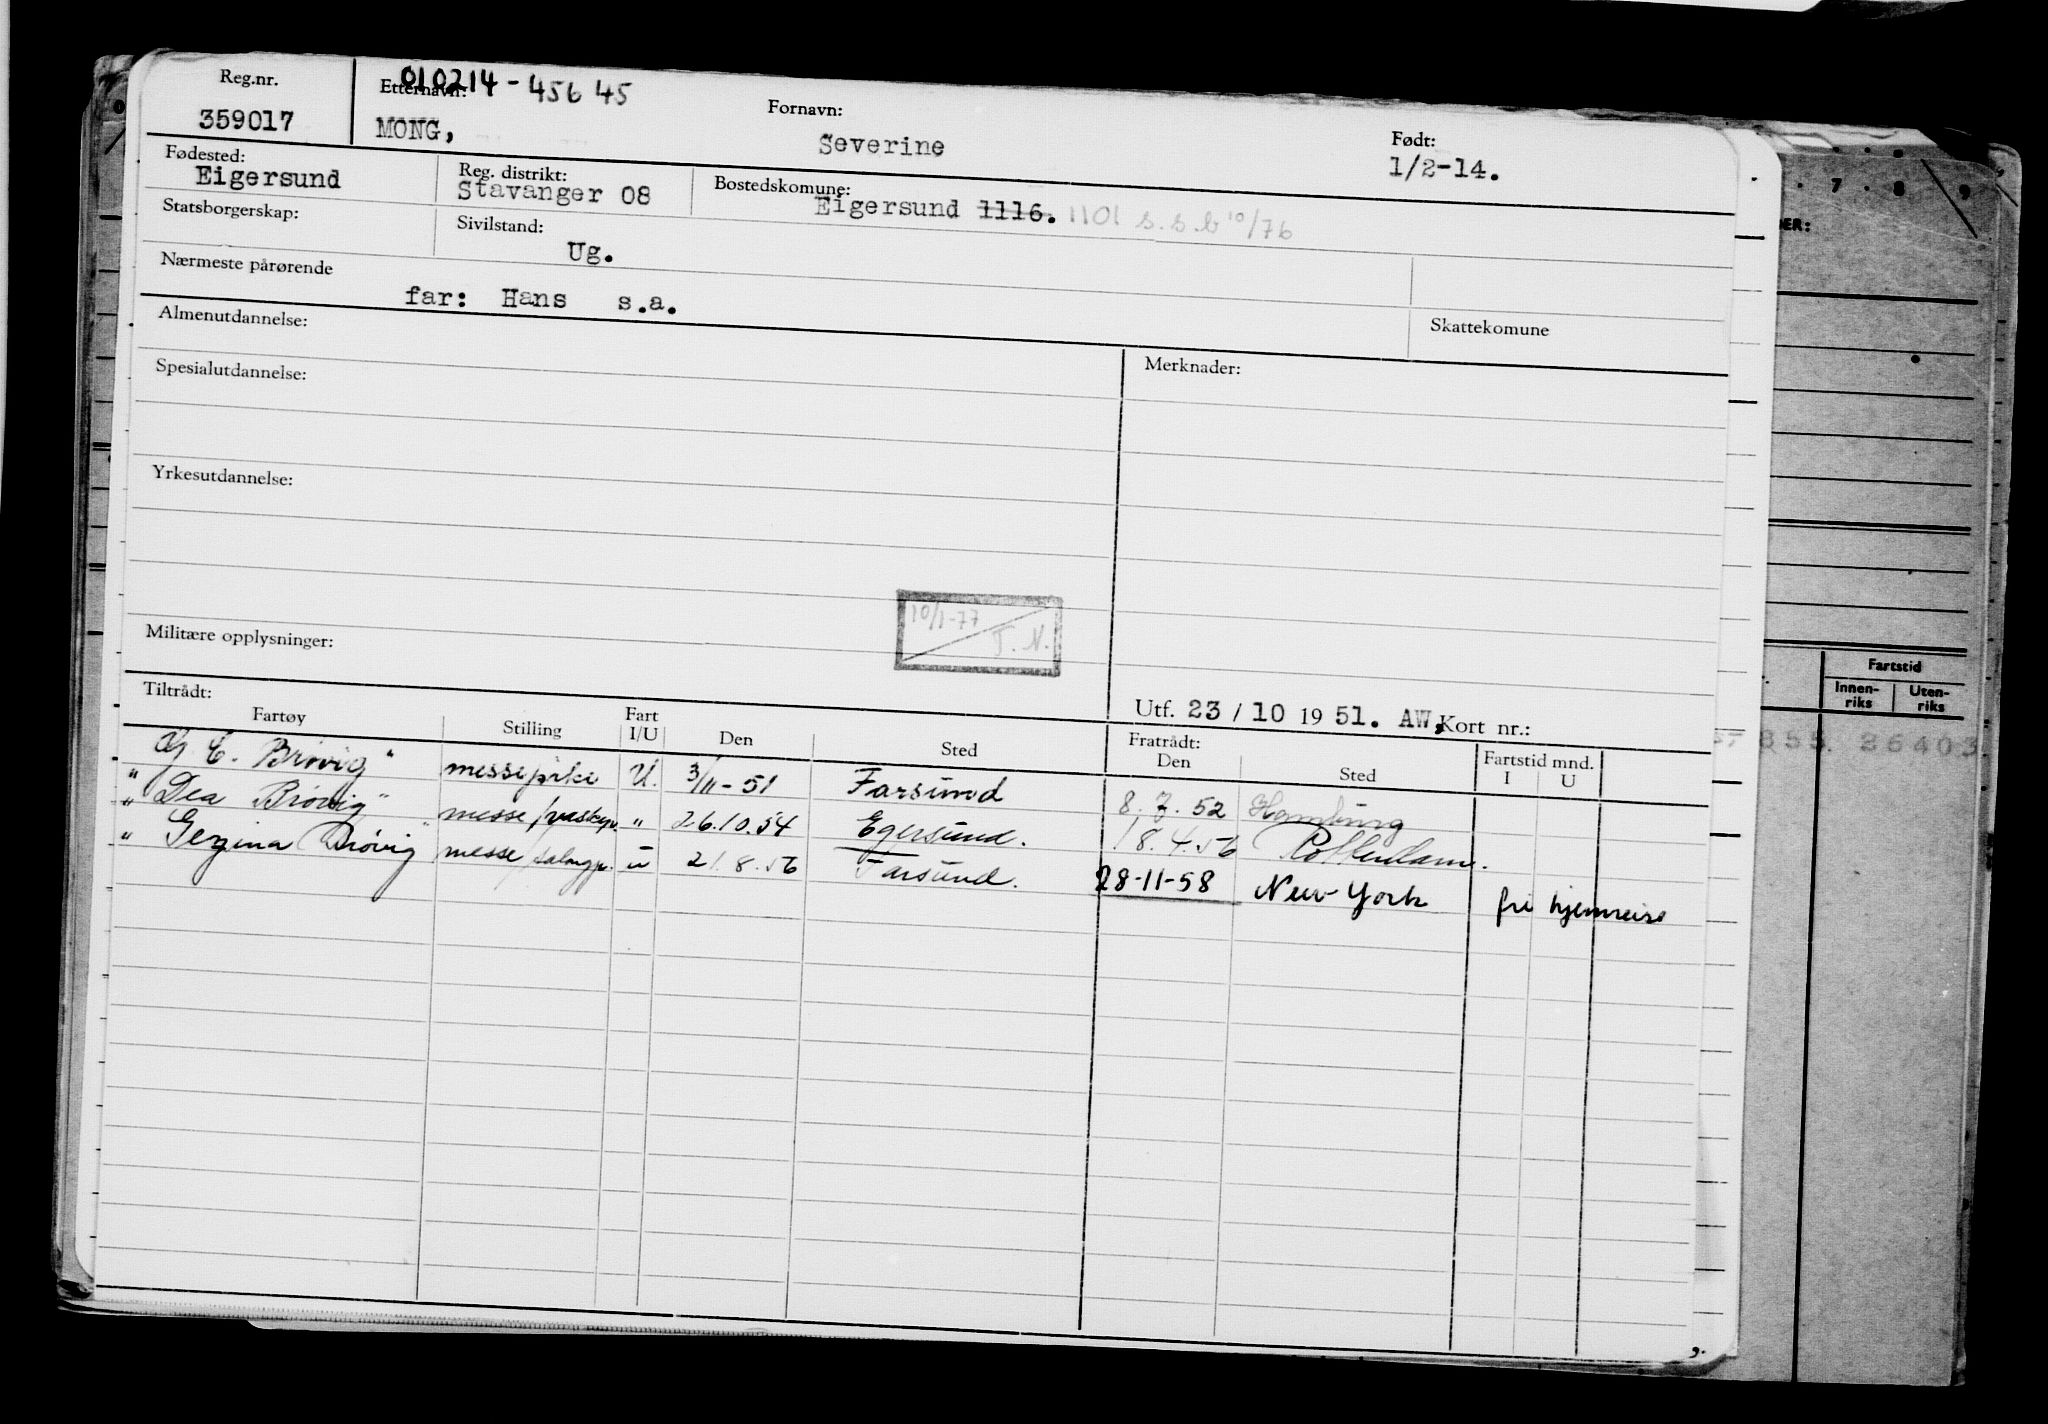 Reg.nr. 010214-45645
Etternavn: Fornavn: Født:
359017 MONG, Severine 1/2-14.
Fødested: Reg. distrikt: Bostedskomune:
Eigersund Stavanger 08 Eigersund 1116. 1101 s.s.b 10/76
Statsborgerskap: Sivilstand:
Ug.
Nærmeste pårørende
far: Hans s.a.
Almenutdannelse: Skattekomune
Spesialutdannelse: Merknader:
Yrkesutdannelse:
10/1-77
T.N.
Militære opplysninger:
Tiltrådt: Utf. 23/10 1951. AW. Kort nr.:
Fartøy Stilling Fart I/U Den Sted Fratrådt: Den Sted Fartstid mnd. I U
G. C. Brøvig" messepike U. 3/11-51 Farsund 8.7.52 Hamburg
" Dea Brøvig" messe/vaskep. " 26.10.54 Egersund. 18.4.56 Rotterdam.
" Gezina Brøvig" messe/salongp. u 21.8.56 Farsund. 28-11-58 New-York fri hjemreise
7 8 9
ER:
Fartstid
Innen-
riks
Uten-
riks
855. 26403